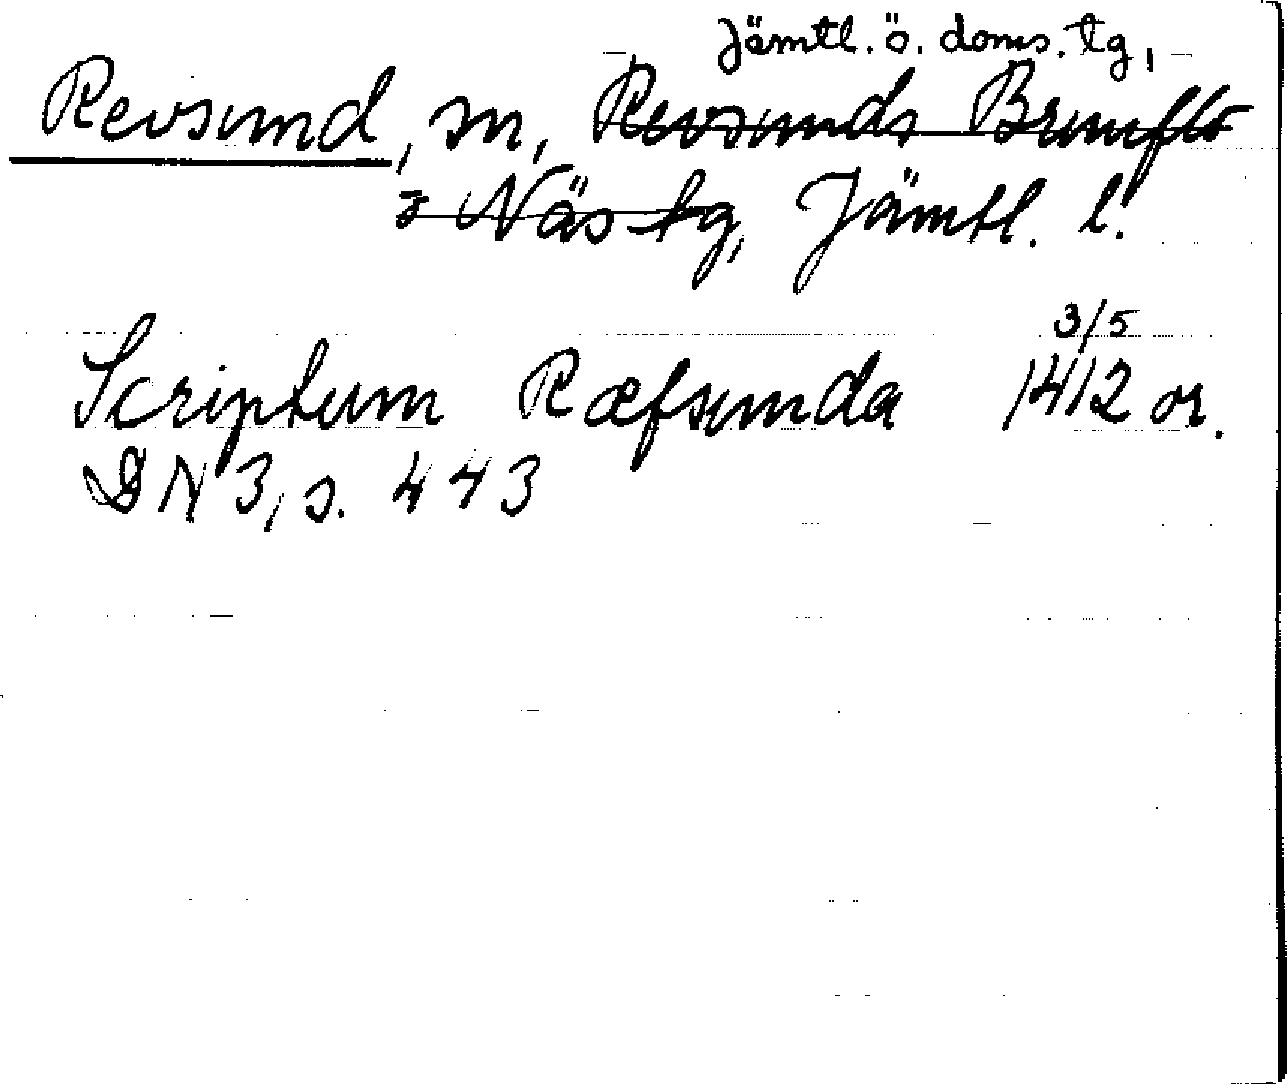 Jämtl. ö. doms. tg,
Revsund, sn, Revsunds Brunflo
o Näs tg, Jämtl. l.
3/5
Scriptum Ræfsunda 1412 or.
DN 3, s. 443